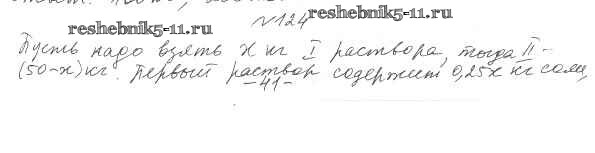 №124
reshebnik5-11.ru
reshebnik5-11.ru
Пусть надо взять x кг I раствора, тогда II -
(50-x) кг. Первый раствор содержит 0,25x кг соли,
-41-